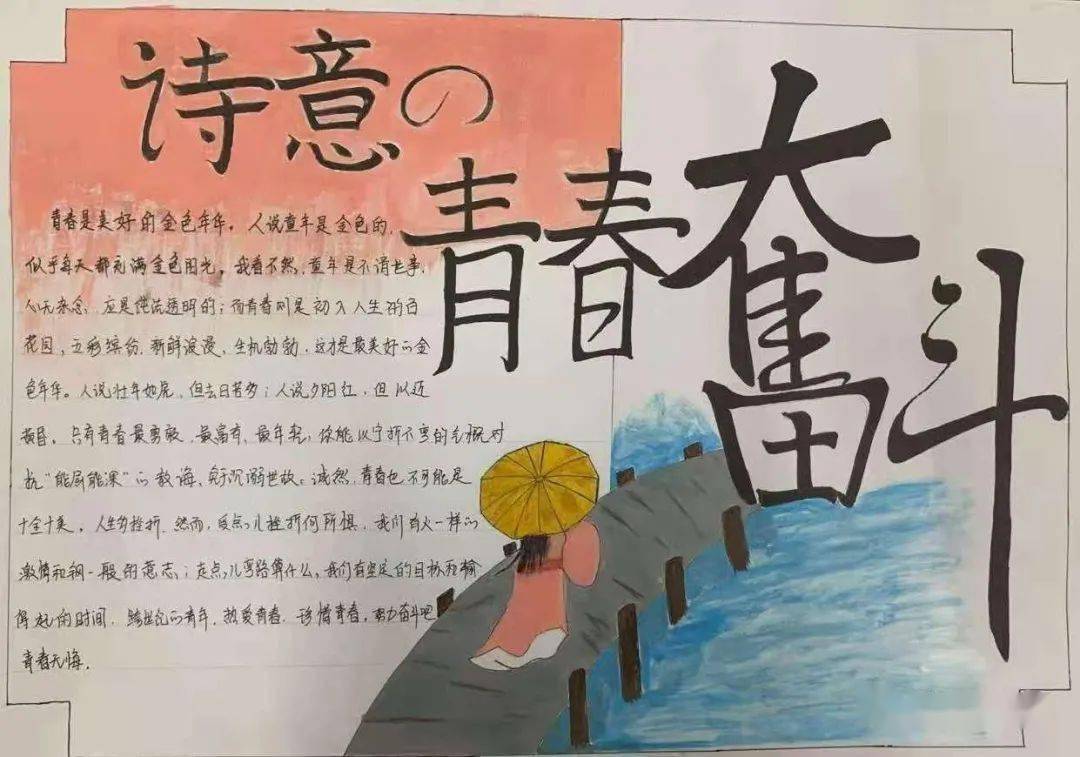 诗意の
青春
奋斗
青春是美好的金色年华。人说童年是金色的,
似乎每天都充满金色阳光。我看不然,童年是不谙世事,
心无杂念,应是纯洁透明的;而青春则是初入人生的百
花园,五彩缤纷,新鲜浪漫,生机勃勃,这才是最美好的金
色年华。人说壮年如虎,但去日苦多;人说夕阳红,但以近
黄昏。只有青春最勇敢,最富有,最年轻,你能以宁折不弯的气概对
抗“能屈能深”的教诲,沉溺世故。诚然,青春也不可能是
十全十美,人生的挫折,然而,受点儿挫折何所惧,我们有火一样的
激情和钢一般的意志;走点儿弯路算什么,我们有坚定的目标和输
得起的时间。的青年,热爱青春,珍惜青春,努力奋斗吧
青春无悔。